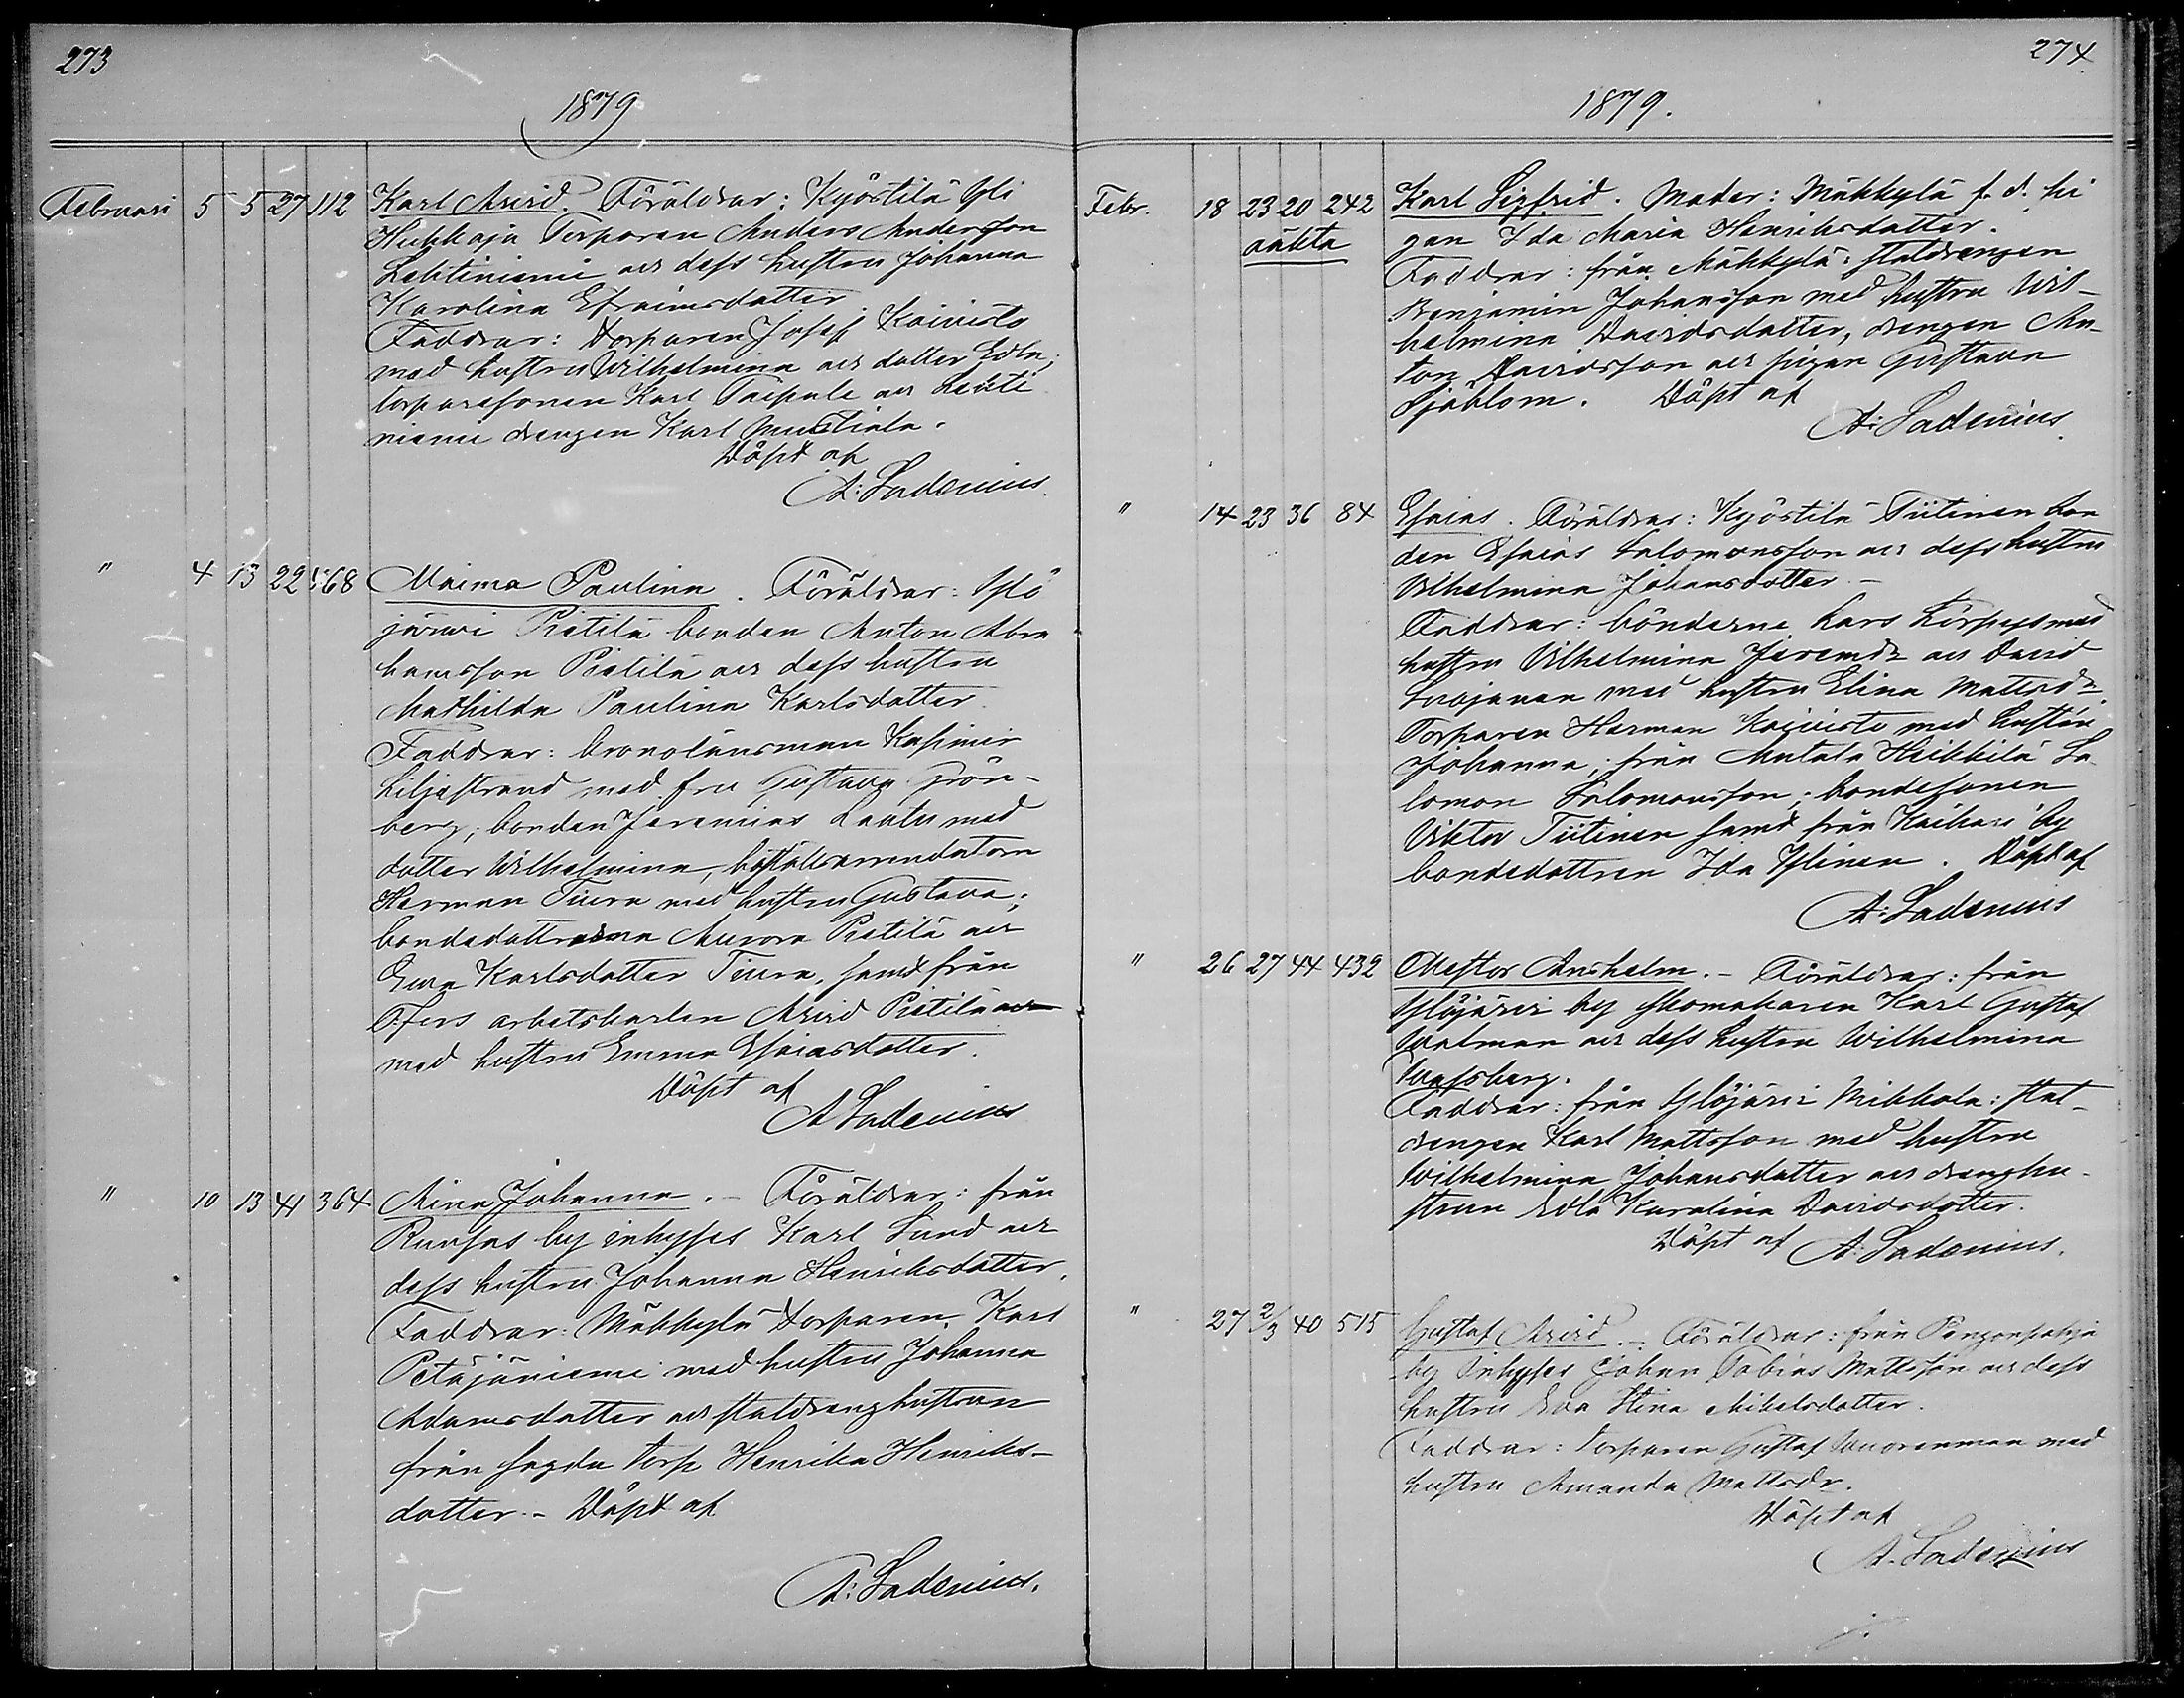 273
1879
Februari 5 5 27 112 Karl Arvid. Föräldrar: Kyöstilä Yli
Huhkaja Torparen Anders Andersson
Lehtiniemi och dess hustru Johanna
Karolina Efraimsdotter
Faddrar: Torparen Josef Koivisto
med hustru Wilhelmina och dotter Edla;
torparesonen Karl Taipale och Lehti
niemi drengen Karl Mustiala.
Döpt af
A: Ladenius.
" 4 13 22 568 Maima Paulina. Föräldrar: Ylö
järwi Pietilä bonden Anton Abra
hamsson Pietilä och dess hustru
Mathilda Paulina Karlsdotter.
Faddrar: kronolänsman Kasimir
Liljestrand med fru Gustava Grön-
berg; bonden Jeremias Lantu med
dotter Wilhelmina, boställsarrendatorn
Herman Tiura med hustru Gustava;
bondedöttrarna Aurora Pietilä och
Ewa Karlsdotter Tiura, samt från
T:fors arbetskarlen Arvid Pietilä och
med hustru Emma Esaiasdotter.
Döpt af
A Ladenius
" 10 13 41 364 Aina Johanna. - Föräldrar: från
Runsas by inhyses Karl Lund och
dess hustru Johanna Henriksdotter.
Faddrar: Mäkkylä Torparen Karl
Petäjäniemi med hustru Johanna
Adamsdotter och statdrenghustrun
från sagda torp Henrika Henriks-
dotter. - Döpt af
A: Ladenius.
274.
1879.
Febr. 18 23 20 242 Karl Sigfrid. Moder: Mäkkylä f. d. pi
oäkta
gan Ida Maria Henriksdotter.
Faddrar: från Mäkkylä: statdrengen
Benjamin Johansson med hustru Wil-
helmina Davidsdotter, drengen An-
ton Davidsson och pigan Gustava
Sjöblom. Döpt af
A: Ladenius.
" 14 23 36 84 Esaias. Föräldrar: Kyöstilä Tiitinen bon
den Esaias Salomonsson och dess hustru
Vilhelmina Johansdotter. -
Faddrar: bönderne Lars med
hustru Vilhelmina Jeremdr och David
med hustru Elina Mattsdr.
Torparen Herman Koivisto med hustru
Johanna; från Mutala Heikkilä Sa
lomon Salomonsson; bondesonen
Viktor Tiitinen samt från Keihari by
bondedottren Ida Ylinen. Döpt af
A: Ladenius
" 26 27 44 432 Nestor Anshelm. - Föräldrar: från
Ylöjärvi by skomakaren Karl Gustaf
Walman och dess hustru Wilhelmina
Faddrar: från Ylöjärvi Mikkola: stat-
drengen Karl Mattsson med hustru
Wilhelmina Johansdotter och drenghu-
strun Edla Karolina Davidsdotter.
Döpt af A: Ladenius.
" 27 2/3 40 515 Gustaf Arvid. - Föräldrar: från Pengonpohja
by Inhyses Johan Tobias Mattsson och dess
hustru Eva Stina Mikelsdotter.
Faddrar: Torparen Gustaf Vuorenmaa med
hustru Amanda Mattsdr.
Döpt af
A. Ladenius